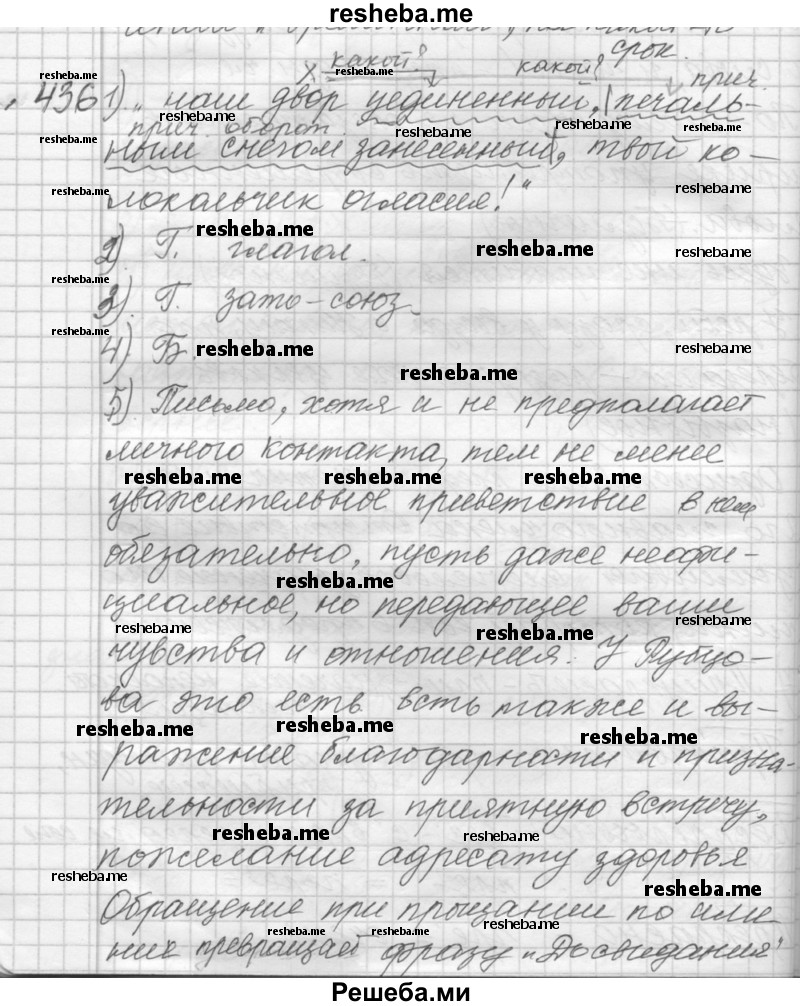 resheba.me
срок.
какой? какой? прич.
436 1) „наш двор уединенный, печаль-
прич. оборот.
ным снегом занесенный, твой ко-
локольчик огласил!"
2). Г. глагол.
3). Г. зато - союз.
4). Б.
5). Письмо, хотя и не предполагает
личного контакта, тем не менее
уважительное приветствие в нем
обязательно, пусть даже неофи-
циальное, но передающее ваши
чувства и отношения. У Рубцо-
ва это есть есть также и вы-
ражение благодарности и призна-
тельности за приятную встречу,
пожелание адресату здоровья
Обращение при прощании по име
ни превращает фразу „До свидания"
Решеба.ми